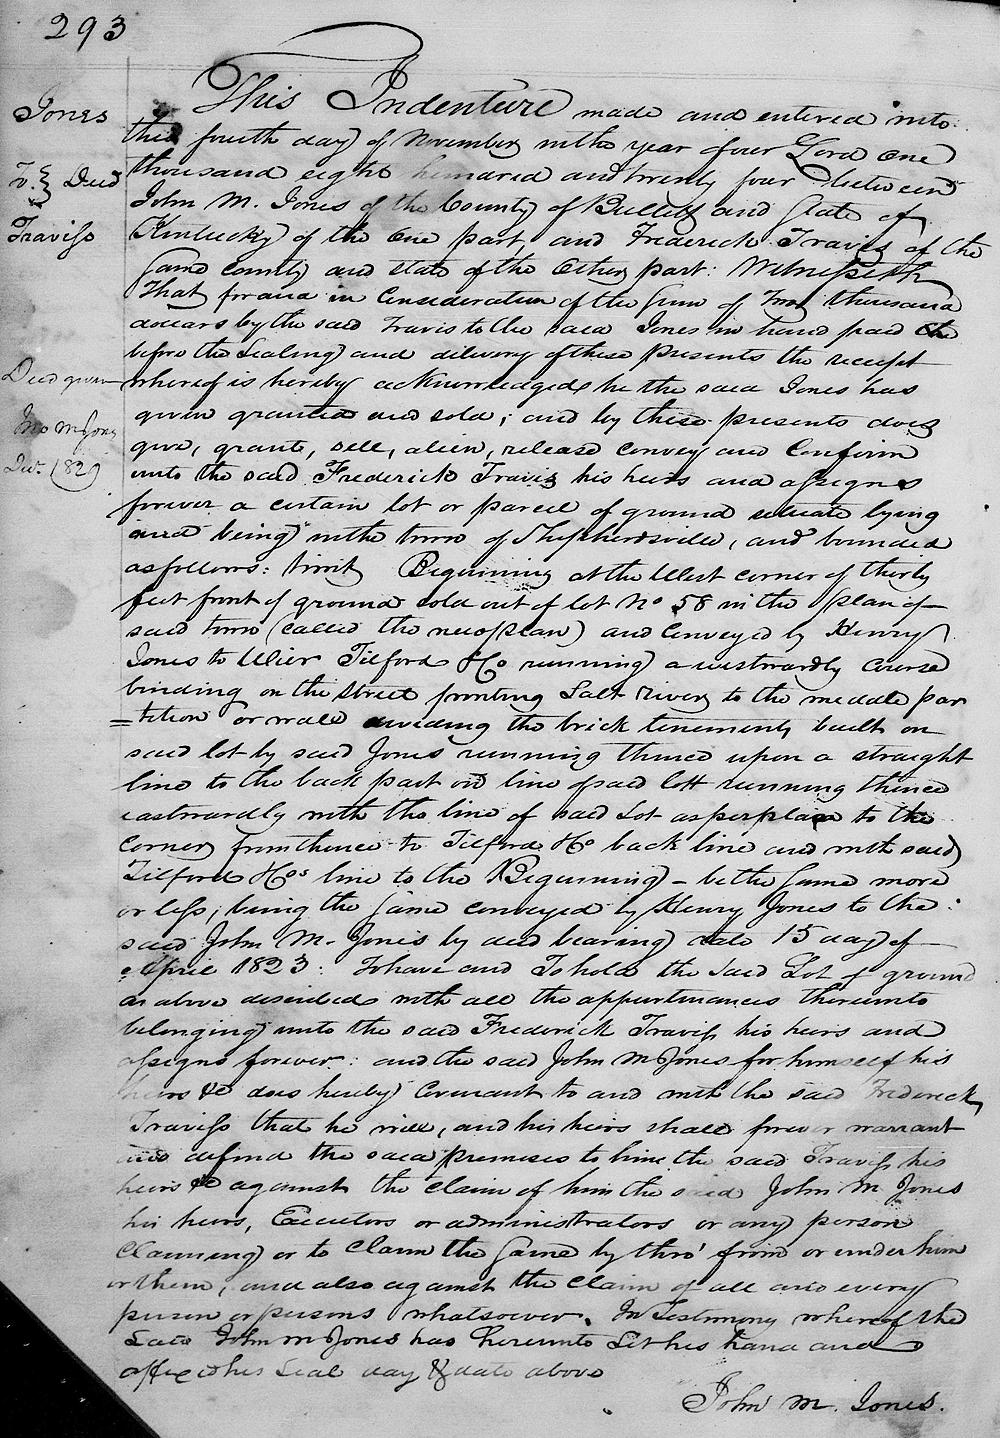 293
Jones
To } Deed
Traviss
Deed given
Jno M Jones
Decr. 1829
This Indenture made and entered into
this fourth day of November in the year of our Lord one
thousand eight hundred and twenty four between
John M. Jones of the County of Bullitt and State of
Kentucky of the one part, and Frederick Travis of the
Same county and state of the other part: Witnesseth
That for and in Consideration of the Sum of Two thousand
dollars by the said Travis to the said Jones in hand paid the
before the Sealing and delivery of these Presents the receipt
whereof is hereby acknowledged he the said Jones has
given granted and sold; and by these presents does
give, grant, sell, alien, release convey and Confirm
unto the said Frederick Travis his heirs and assigns
forever a certain lot or parcel of ground situate lying
and being in the town of Shepherdsville, and bounded
as follows: towit Beginning at the West corner of thirty
feet front of ground sold out of lot No 58 in the plan of
said town (called the new plan) and Conveyed by Henry
Jones to Wier Tilford & Co running a westwardly course
binding on the street fronting Salt river to the middle par
=tition or wall dividing the brick tenements built on
said lot by said Jones running thence upon a straight
line to the back part or line of said lott running thence
eastwardly with the line of said Lot as per plan to the
corner from thence to Tilford & Co back line and with said
Tilford & Cos line to the Beginning - be the Same more
or less; being the Same conveyed by Henry Jones to the
said John M. Jones by deed bearing date 15 day of
April 1823: To have and To hold the said Lot of ground
as above described with all the appurtenances thereunto
belonging unto the said Frederick Traviss his heirs and
assigns forever: and the said John M Jones for himself his
heirs &c does hereby Covenant to and with the said Frederick
Traviss that he will, and his heirs shall forever warrant
and defend the said premises to him the said Traviss his
heirs &c against the claim of him the said John M Jones
his heirs, Executors or administrators or any person
Claiming or to Claim the Same by thro' from or under him
or them, and also against the claim of all and every
person or persons whatsoever. In Testimony whereof the
said John M Jones has hereunto Set his hand and
affixed his Seal day & date above
John M. Jones.